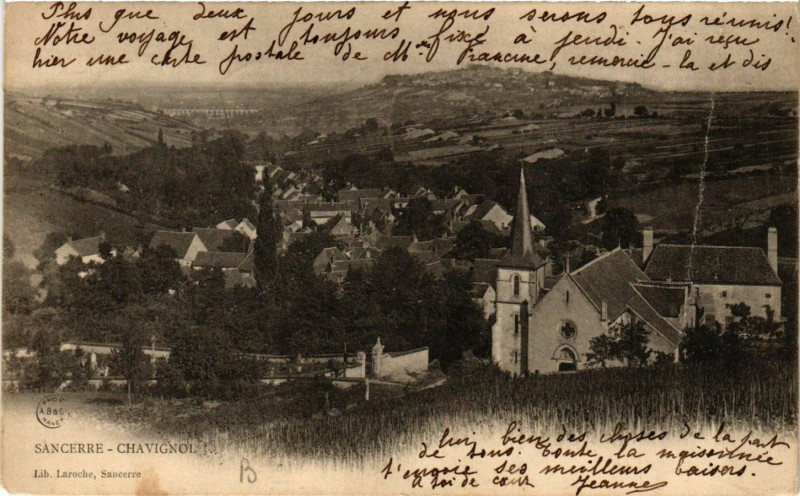 Plus que deux jours et nous serons tous réunis!
Notre voyage est toujours fixé à jeudi. J'ai reçu
hier une carte postale de Mme Francine, remercie-la et dis
lui bien des choses de la part
de tous. Toute la maisonnée
t'envoie ses meilleurs baisers.
A toi de cœur Jeanne
SANCERRE - CHAVIGNOL
Lib. Laroche, Sancerre
B